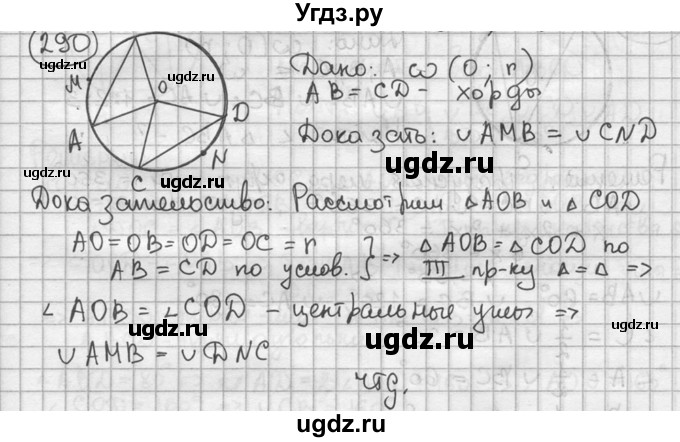 Угдз.ру
290
M
O
A
D
N
C
Дано: ω (O; r)
AB = CD - хорды
Доказать: ∪ AMB = ∪ CND
Доказательство: Рассмотрим △ AOB и △ COD
AO = OB = OD = OC = r } => △ AOB = △ COD по
AB = CD по услов. III пр-ку △ = △ =>
∠ AOB = ∠ COD - центральные углы =>
∪ AMB = ∪ DNC
чтд.
ugdz.ru
ugdz.ru
ugdz.ru
ugdz.ru
ugdz.ru
ugdz.ru
ugdz.ru
ugdz.ru
ugdz.ru
ugdz.ru
ugdz.ru